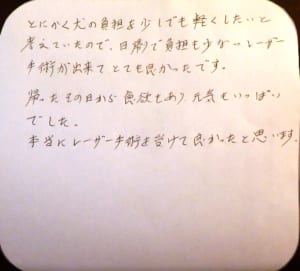 とにかく犬の負担を少しでも軽くしたいと
考えていたので、日帰りで負担も少ないレーザー
手術が出来てとても良かったです。
帰ったその日から食欲もあり元気もいっぱい
でした。
本当にレーザー手術を受けて良かったと思います。